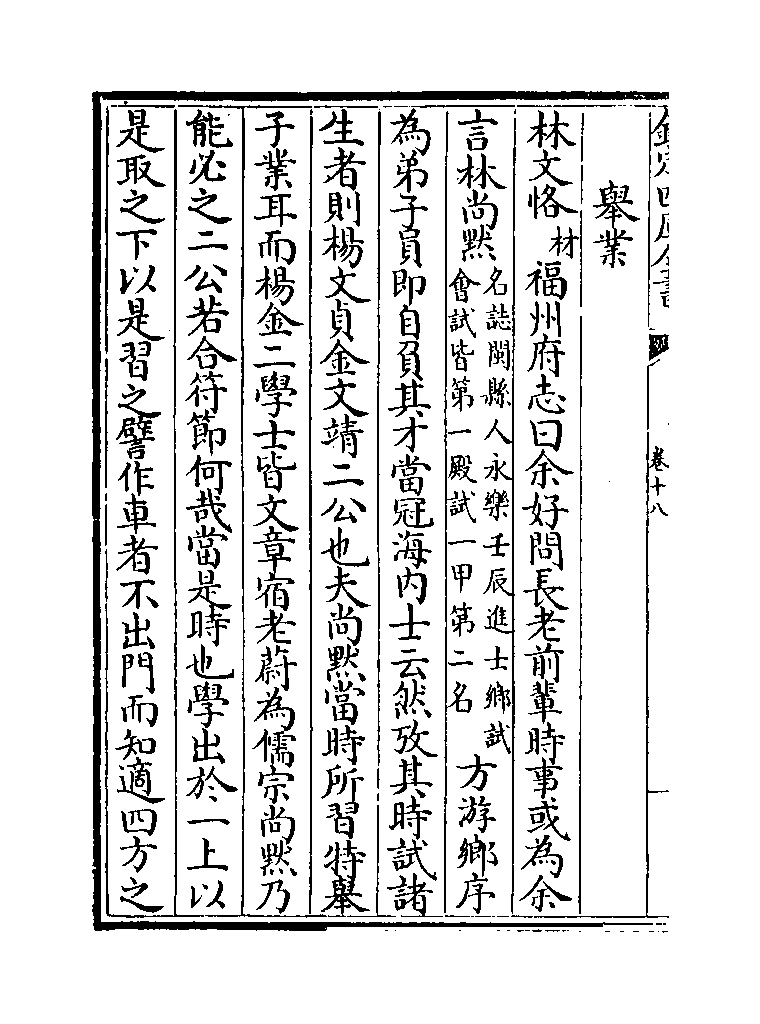 欽定四庫全書
卷十八
舉業
林文恪材福州府志曰余好問長老前輩時事或為余
言林尚黙名誌閩縣人永樂壬辰進士鄉試會試皆第一殿試一甲第二名方游鄉序
為弟子員即自負其才當冠海内士云然攷其時試諸
生者則楊文貞金文靖二公也夫尚黙當時所習特舉
子業耳而楊金二學士皆文章宿老蔚為儒宗尚黙乃
能必之二公若合符節何哉當是時也學出於一上以
是取之下以是習之譬作車者不出門而知適四方之